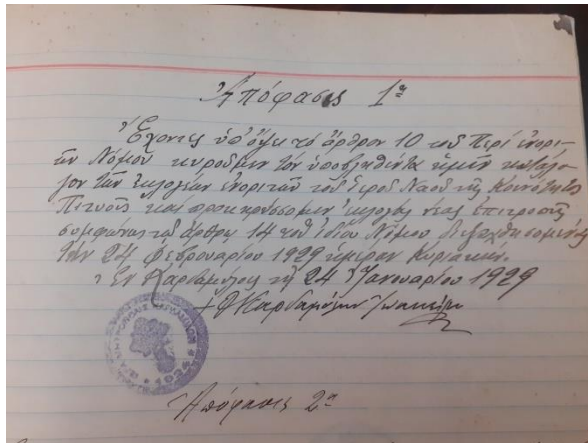 Ἀπόφασις 1η
Ἔχοντες ὑπ' ὄψει τὸ ἄρθρον 10 τοῦ Περὶ ἐνορι-
ῶν Νόμου κυροῦμεν τὸν ὑποβληθέντα ἡμῖν κατάλο-
γον τῶν ἐκλογέων ἐνοριτῶν τοῦ Ἱεροῦ Ναοῦ τῆς Κοινότητος
καὶ προκηρύσσομεν ἐκλογὰς νέας ἐπιτροπῆς
συμφώνως τῷ ἄρθρῳ 14 τοῦ ἰδίου Νόμου διεξαχθησομένας
τὴν 24 Φεβρουαρίου 1929 ἡμέραν Κυριακήν.
Ἐν Καρδαμύλοις τῇ 24 Ἰανουαρίου 1929
Καρδαμύλων Ἰωακεὶμ
1924
Ἀπόφασις 2α